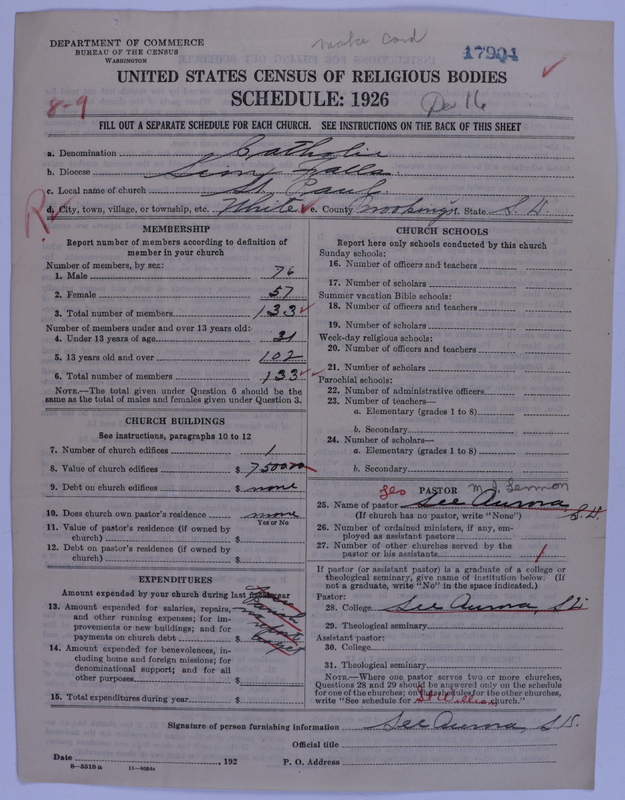 DEPARTMENT OF COMMERCE
BUREAU OF THE CENSUS
WASHINGTON
make card
17904
UNITED STATES CENSUS OF RELIGIOUS BODIES
SCHEDULE: 1926
8-9
FILL OUT A SEPARATE SCHEDULE FOR EACH CHURCH. SEE INSTRUCTIONS ON THE BACK OF THIS SHEET
a. Denomination Catholic
b. Diocese Sioux Falls
c. Local name of church St. Paul
d. City, town, village, or township, etc. White e. County Brookings f. State S. D.
MEMBERSHIP
Report number of members according to definition of member in your church
Number of members, by sex:
1. Male 76
2. Female 57
3. Total number of members 133
Number of members under and over 13 years old:
4. Under 13 years of age 31
5. 13 years old and over 102
6. Total number of members 133
NOTE.—The total given under Question 6 should be the
same as the total of males and females given under Question 3.
CHURCH BUILDINGS
See instructions, paragraphs 10 to 12
7. Number of church edifices 1
8. Value of church edifices $ 7500.00
9. Debt on church edifices $ none
10. Does church own pastor's residence none
Yes or No
11. Value of pastor's residence (if owned by
church) $
12. Debt on pastor's residence (if owned by
church) $
EXPENDITURES
Amount expended by your church during last fiscal year
13. Amount expended for salaries, repairs,
and other running expenses; for im-
provements or new buildings; and for
payments on church debt $
14. Amount expended for benevolences, in-
cluding home and foreign missions; for
denominational support; and for all
other purposes $
15. Total expenditures during year $
CHURCH SCHOOLS
Report here only schools conducted by this church
Sunday schools:
16. Number of officers and teachers
17. Number of scholars
Summer vacation Bible schools:
18. Number of officers and teachers
19. Number of scholars
Week-day religious schools:
20. Number of officers and teachers
21. Number of scholars
Parochial schools:
22. Number of administrative officers
23. Number of teachers—
a. Elementary (grades 1 to 8)
b. Secondary
24. Number of scholars—
a. Elementary (grades 1 to 8)
b. Secondary
PASTOR M. J. Lennon
25. Name of pastor See Aurora, S. D.
(If church has no pastor, write "None")
26. Number of ordained ministers, if any, em-
ployed as assistant pastors
27. Number of other churches served by the
pastor or his assistants 1
If pastor (or assistant pastor) is a graduate of a college or
theological seminary, give name of institution below. (If
not a graduate, write "No" in the space indicated.)
Pastor:
28. College See Aurora, S D
29. Theological seminary
Assistant pastor:
30. College
31. Theological seminary
NOTE.—Where one pastor serves two or more churches,
Questions 28 and 29 should be answered only on the schedule
for one of the churches; on the schedules for the other churches,
write "See schedule for St William church."
Signature of person furnishing information See Aurora, S D.
Official title
Date , 192 P. O. Address
8—5518a 11—9084a